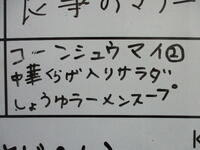 コーンシュウマイ②
中華くらげ入りサラダ
しょうゆラーメンスープ